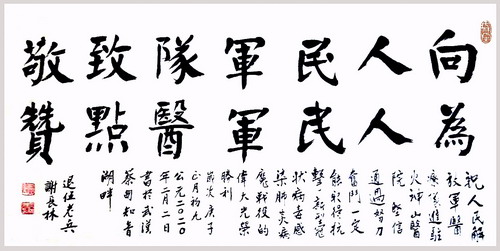 向人民軍隊致敬
為人民軍醫點贊
祝人民解
放軍醫
療隊進駐
火神山醫
院 堅信
通過努力
奮鬥一定
能
擊新冠
狀病毒感
染肺炎疫
魔戰役的
偉大光榮
勝利
歲次庚子
正月初九
公元二0二0
年二月二日
書於武漢
蔡甸知音
湖畔
退伍老兵
謝長林